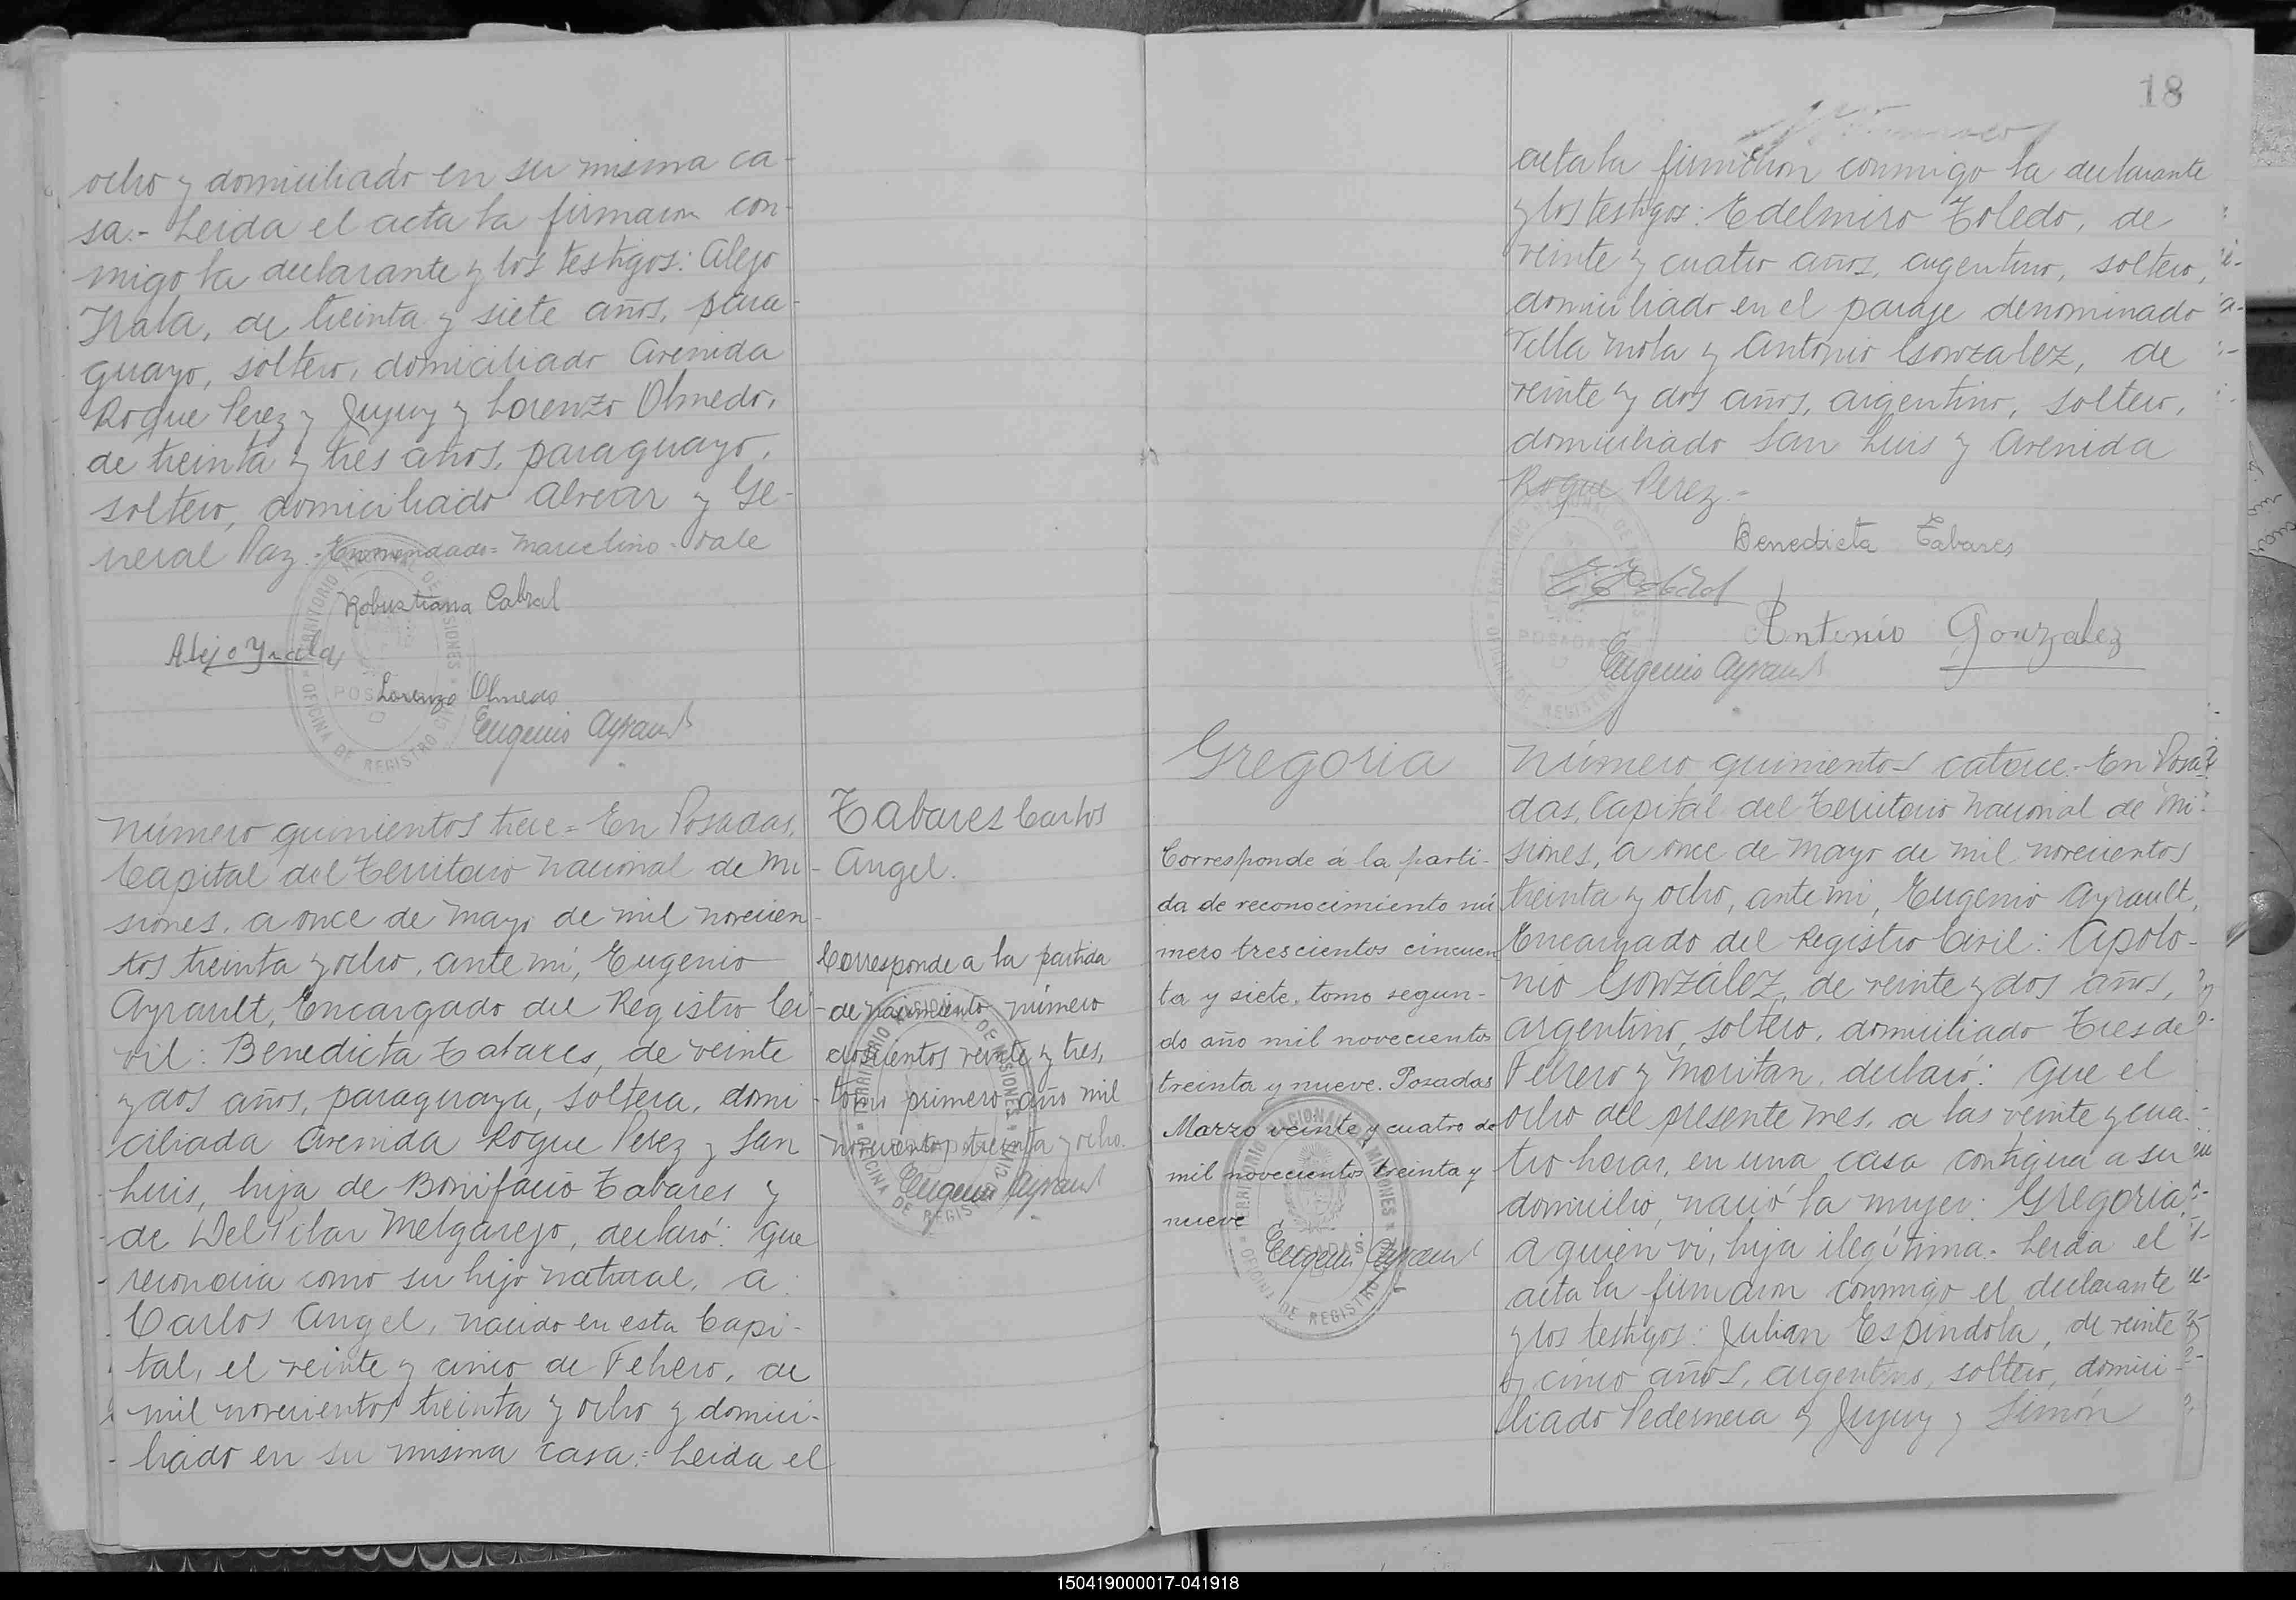 ocho y domiciliado en su misma ca-
sa.- Leida el acta la firmaron con-
migo la declarante y los testigos: Alejo
Irala, de treinta y siete años, para-
guayo, soltero, domiciliado Avenida
Roque Perez y Jujuy y Lorenzo Olmedo,
de treinta y tres años, paraguayo,
soltero, domiciliado Alvear y Ge-
neral Paz.- Enmendado= Marcelino- Vale
Robustiana Cabral
Alejo Yrala
Lorenzo Olmedo
Eugenio Ayrault
Número quinientos trece= En Posadas,
Capital del Territorio Nacional de Mi-
siones, a once de Mayo de mil novecien-
tos treinta y ocho, ante mi, Eugenio
Ayrault, Encargado del Registro Ci-
vil: Benedicta Tabares, de veinte
y dos años, paraguaya, soltera, domi-
ciliada Avenida Roque Perez y San
Luis, hija de Bonifacio Tabares y
de Del Pilar Melgarejo, declaró: Que
reconocia como su hijo natural, a
Carlos Angel, nacido en esta Capi-
tal, el veinte y cinco de Febrero, de
mil novecientos treinta y ocho y domici-
liado en su misma casa.= Leida el
Tabares Carlos
Angel.
Corresponde a la partida
de nacimiento número
doscientos veinte y tres,
tomo primero año mil
novecientos treinta y ocho.
Eugenio Ayrault
18
acta la firmaron conmigo la declarante
y los testigos: Edelmiro Toledo, de
veinte y cuatro años, argentino, soltero,
domiciliado en el paraje denominado
Villa Mola y Antonio Gonzalez, de
veinte y dos años, argentino, soltero,
domiciliado San Luis y Avenida
Roque Perez.=
Benedicta Tabares
Antonio Gonzalez
Eugenio Ayrault
Gregoria
Corresponde á la parti-
da de reconocimiento nú
mero trescientos cincuen
ta y siete, tomo segun-
do año mil novecientos
treinta y nueve. Posadas
Marzo veinte y cuatro de
mil novecientos treinta y
nueve
Eugenio Ayrault
Número quinientos catorce.- En Posa-
das, Capital del Territorio Nacional de Mi-
siones, a once de Mayo de mil novecientos
treinta y ocho, ante mi, Eugenio Ayrault,
Encargado del Registro Civil: Apolo-
nio González, de veinte y dos años,
argentino, soltero, domiciliado Tres de
Febrero y Moritan, declaró: Que el
ocho del presente mes, a las veinte y cua-
tro horas, en una casa contigua a su
domicilio, nació la mujer: Gregoria,
a quien vi, hija ilegítima.- Leida el
acta la firmaron conmigo el declarante
y los testigos: Julian Espindola, de veinte
y cinco años, argentino, soltero, domici-
liado Pedernera y Jujuy y Simón
150419000017-041918